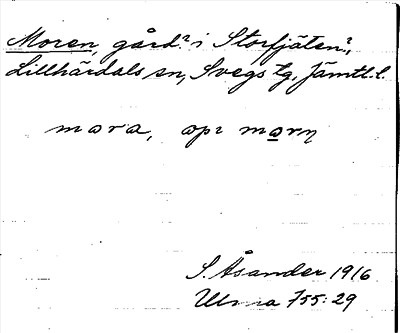 Moren, gård? i Storfjäten?,
Lillhärdals sn, Svegs tg, Jämtl. l.
mora, opr morn
S. Åsander 1916
Ulma 755:29